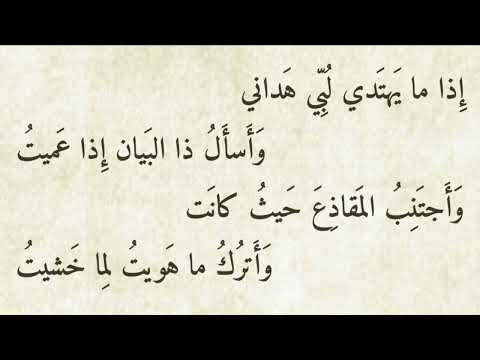 إِذا ما يَهتَدي لُبِّي هَداني
وَأَسأَلُ ذا البَيان إِذا عَميتُ
وَأَجتَنِبُ المَقاذِعَ حَيثُ كانَت
وَأَترُكُ ما هَويتُ لِما خَشيتُ